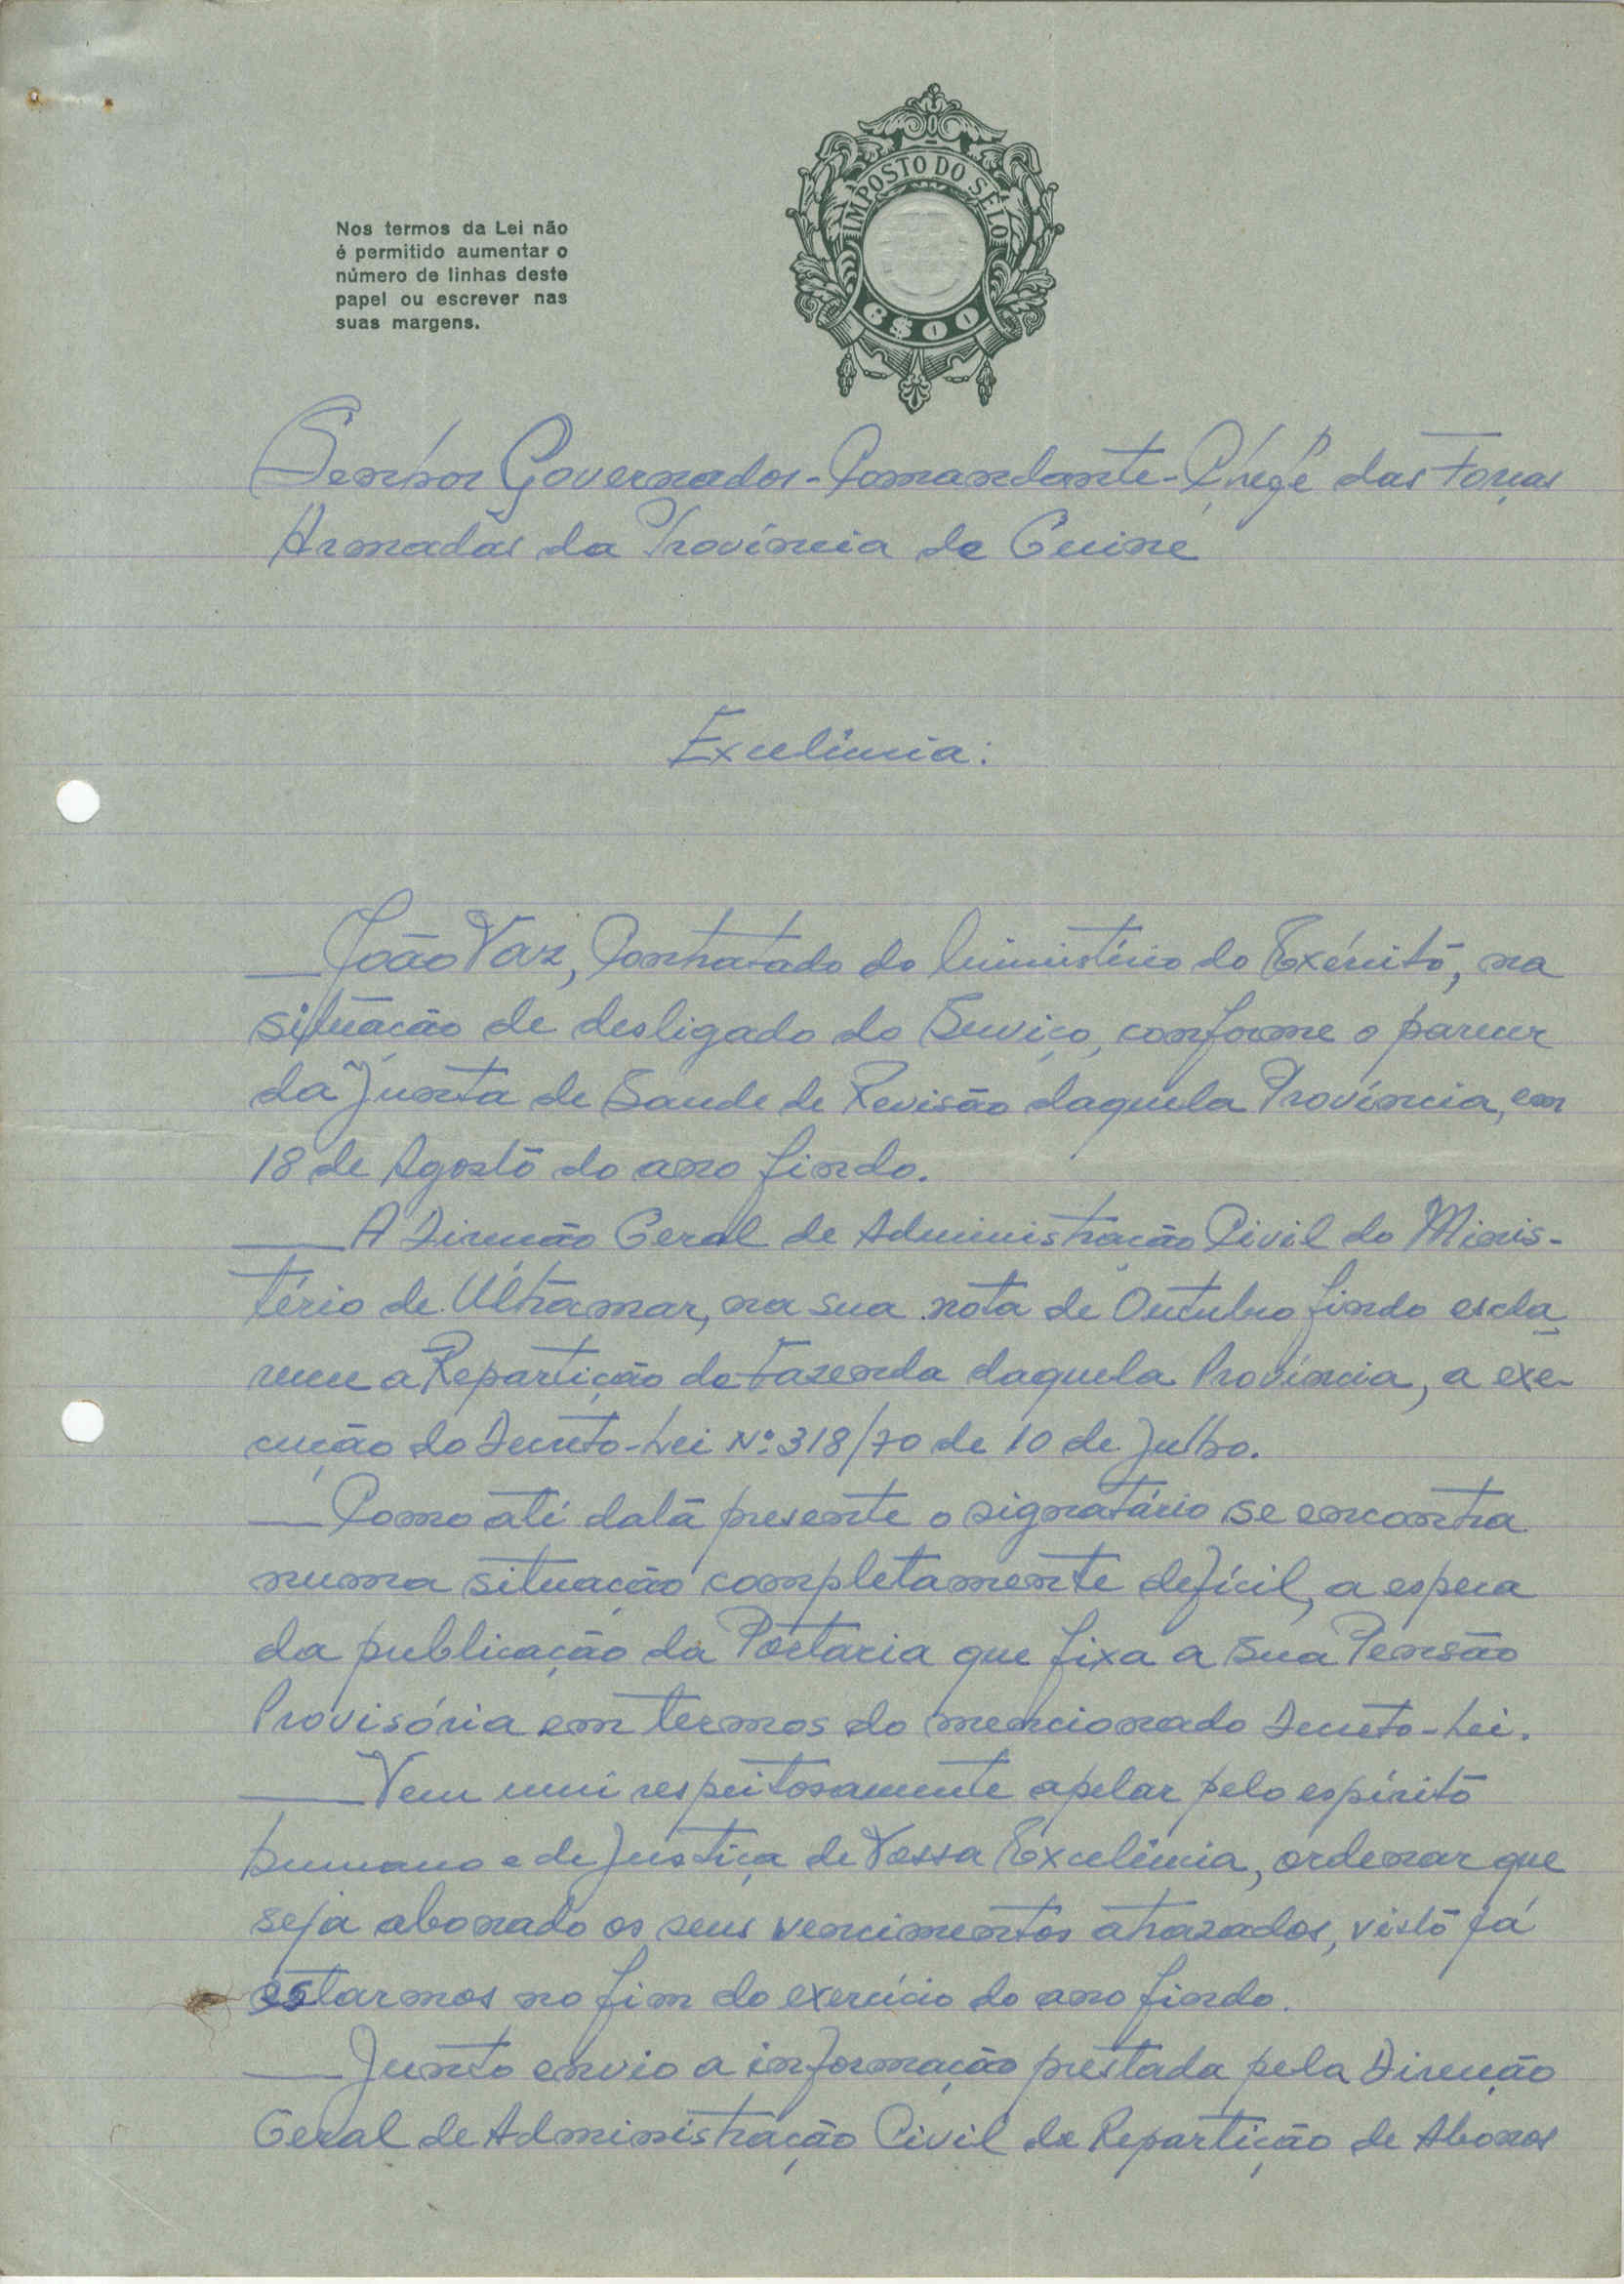 IMPOSTO DO SELO
6$00
Nos termos da Lei não
é permitido aumentar o
número de linhas deste
papel ou escrever nas
suas margens.
Senhor Governador-Comandante-Chefe das Forças
Armadas da Província de Guiné
Excelência:
João Vaz, Contratado do Ministério do Exército, na
situação de desligado do Serviço, conforme o parecer
da Junta de Saude de Revisão daquela Província, em
18 de Agosto do ano findo.
A Direcção Geral de Administração Civil do Minis-
tério de Ultramar, na sua nota de Outubro findo escla
receu a Repartição de Fazenda daquela Província, a exe-
cução do Decreto-Lei Nº 318/70 de 10 de Julho.
Como até data presente o signatário se encontra
numa situação completamente defícil, a espera
da publicação da Portaria que fixa a sua Pensão
Provisória em termos do mencionado Decreto-Lei.
Vem mui respeitosamente apelar pelo espírito
humano e de Justiça de Vossa Excelência, ordenar que
seja abonado os seus vencimentos atrazados, visto já
estarmos no fim do exercício do ano findo.
Junto envio a informação prestada pela Direcção
Geral de Administração Civil da Repartição de Abonos